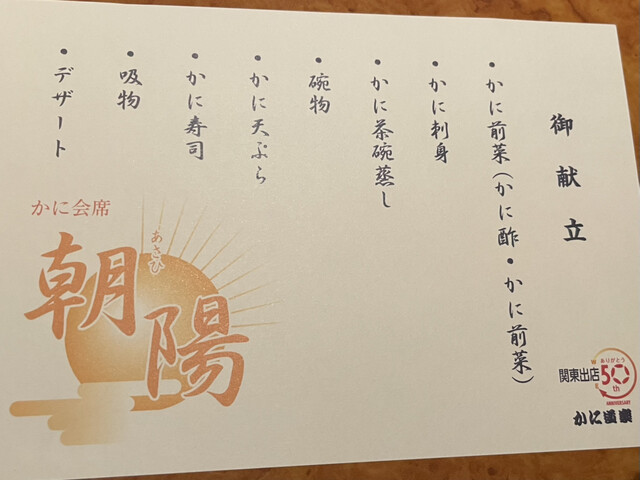 御献立
・かに前菜(かに酢・かに前菜)
・かに刺身
・かに茶碗蒸し
・碗物
・かに天ぷら
・かに寿司
・吸物
・デザート
かに会席
あさひ
朝陽
ありがとう
関東出店50th
ANNIVERSARY
かに道楽